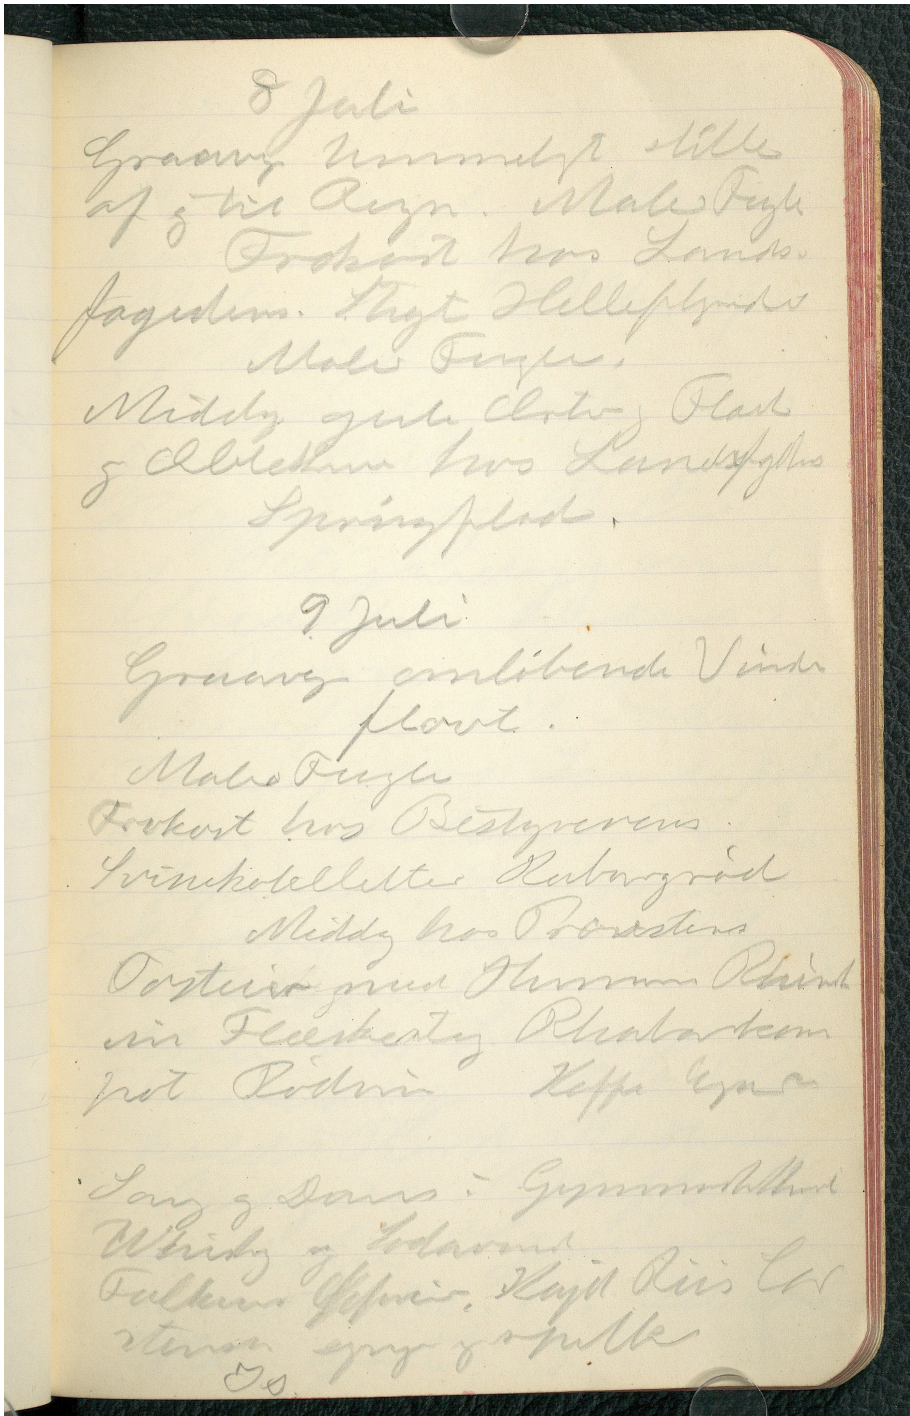 8 Juli
Graavejr himmelgt stille
af og til Regn. Maler Fugle
Frokost hos Lands-
fogedens. Stegt Helleflynder
Maler Fugle.
Middag gule Ærter og Flæsk
og Æblekage hos Landsfogdens
Springflod.
9 Juli
Graavejr omløbende Vinde
flovt.
Maler Fugle
Frokost hos Bestyrerens.
Svinekotelletter Rabargrød
Middag hos Provstens
med Hummer Rhinsk
vin Flæskesteg Rhabarberkom
pot Rødvin Kaffe
Sang og Dans i
Whisky og Sodavand
Riis Car
stensen og spille
Is